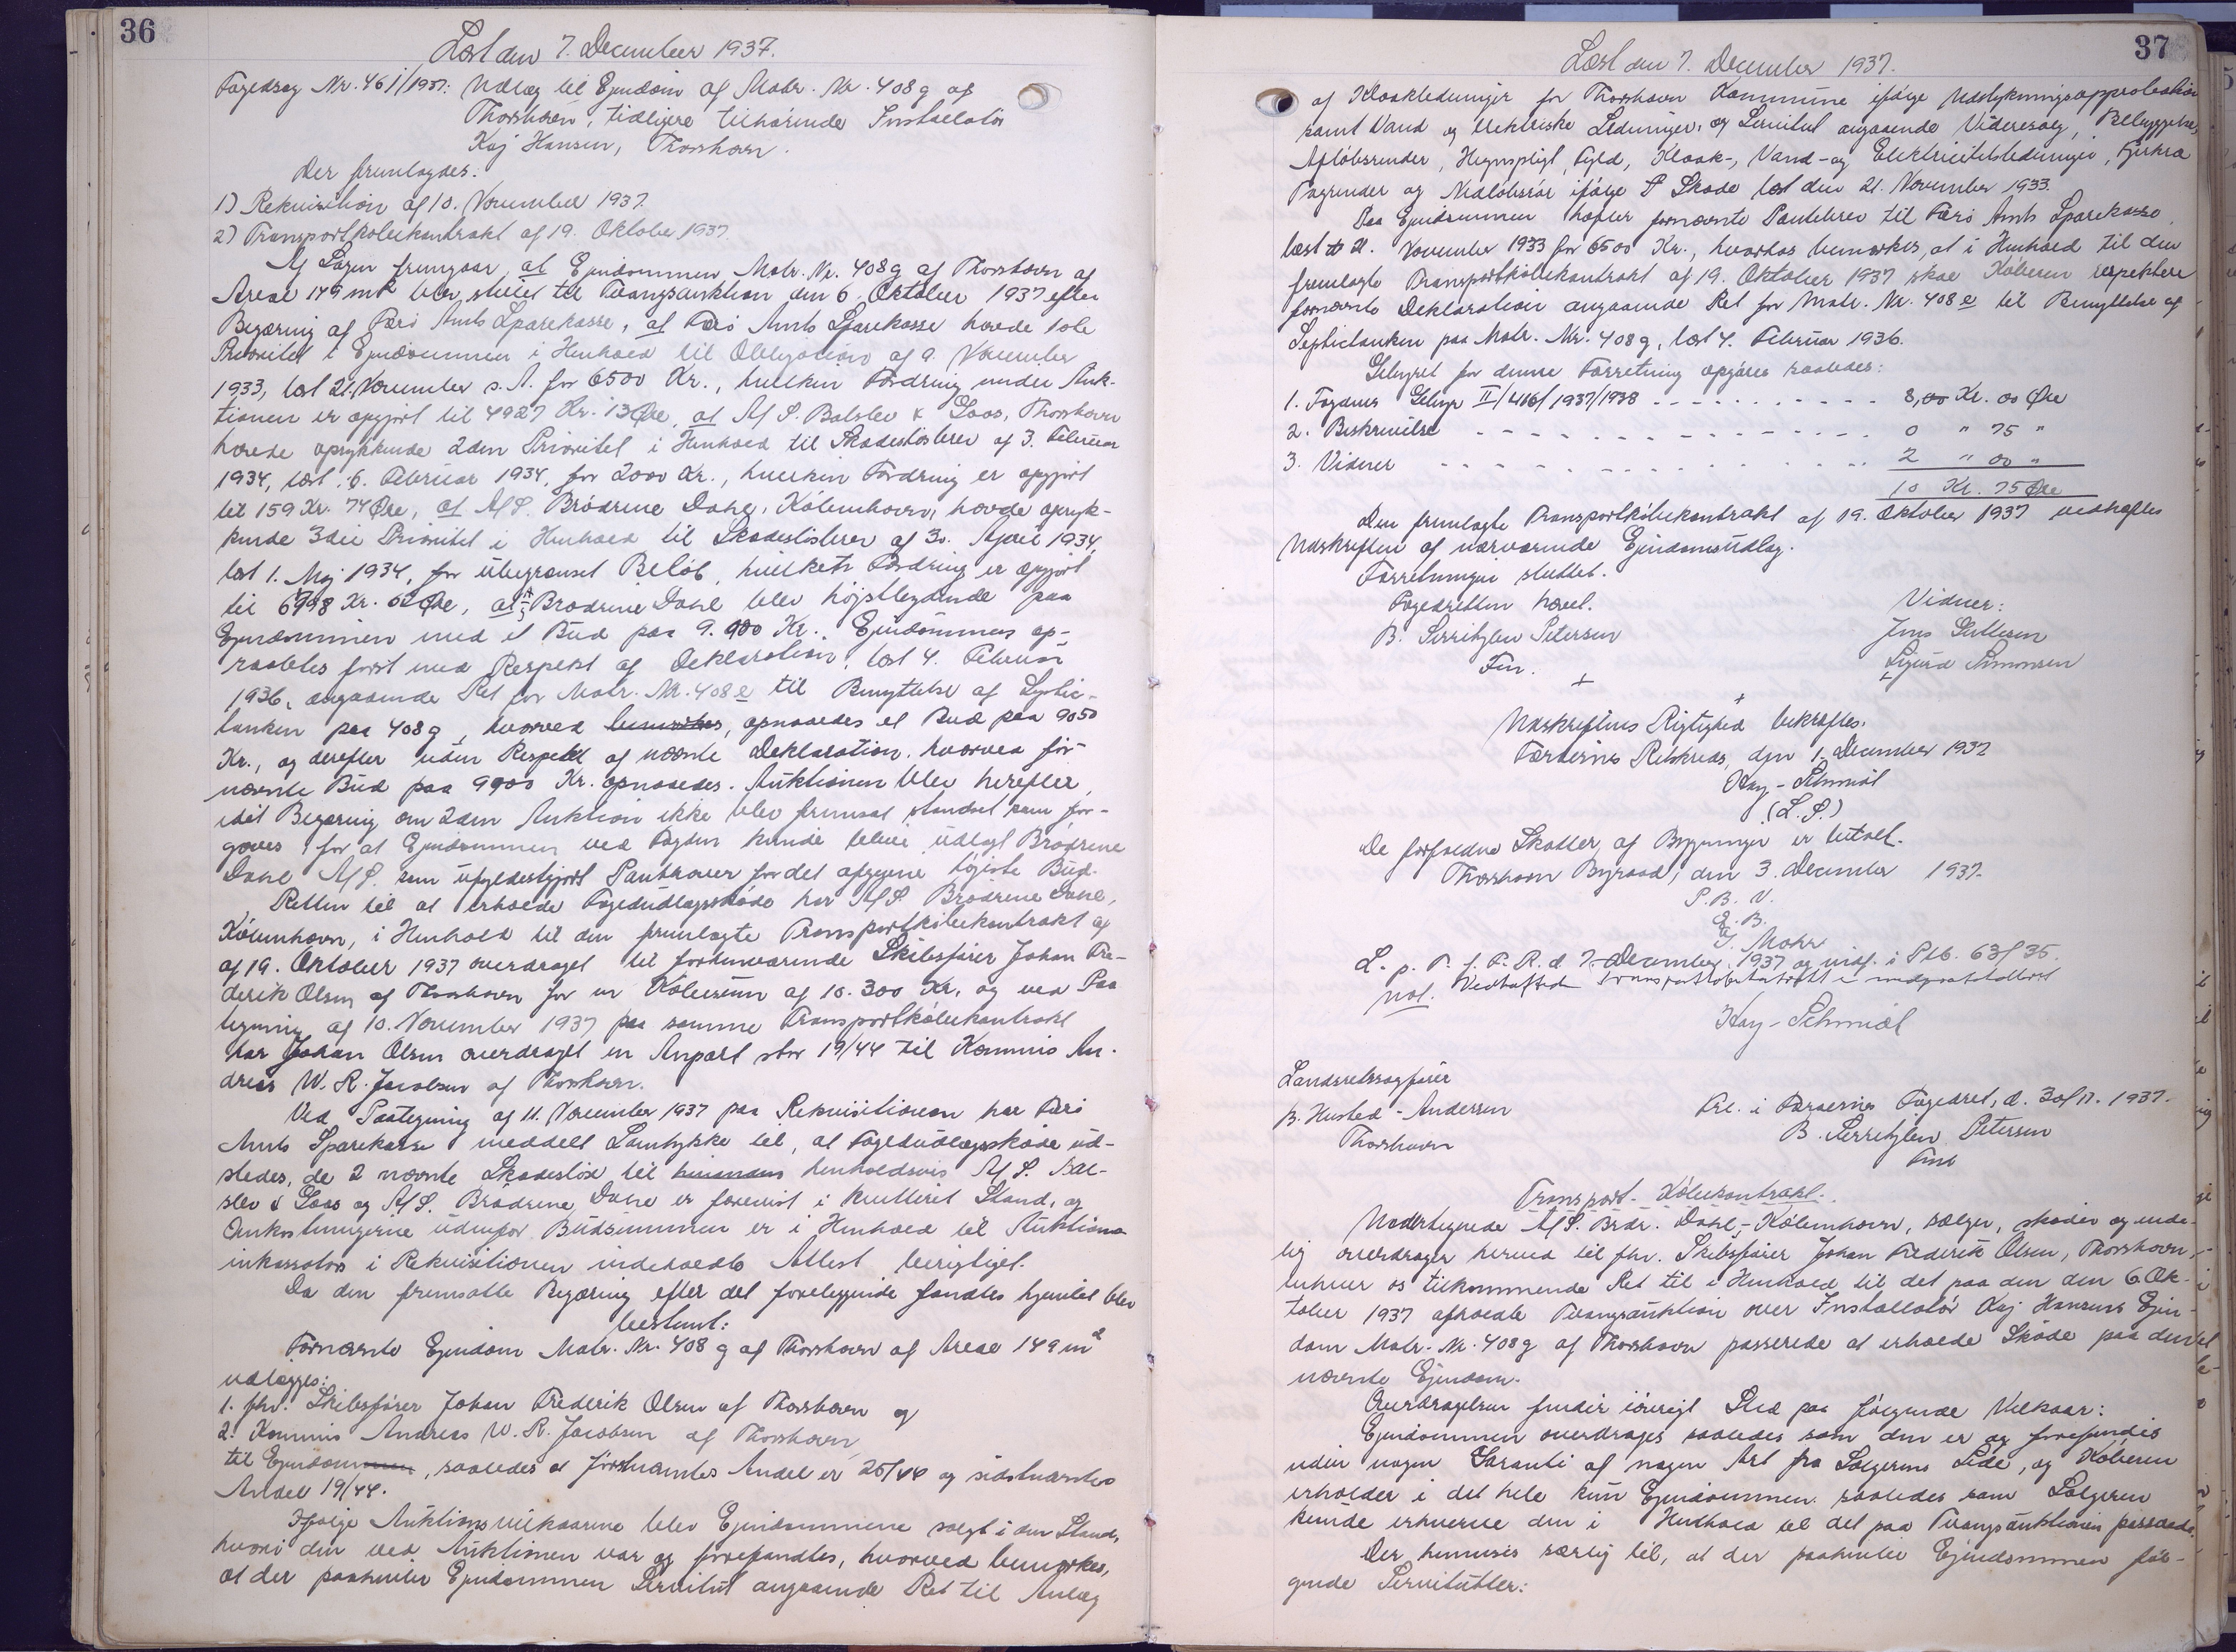 36
Læst den 7. December 1937.
Fogedsag Nr. 46j/1937: Udlæg til Ejendom af Matr. Nr. 408g af
Thorshavn, tidligere tilhørende Installatør
Kaj Hansen, Thorshavn.
Der fremlagdes:
1) Rekvisition af 10. November 1937.
2) Transportkøbekontrakt af 19. Oktober 1937
Af Sagen fremgaar, at Ejendommen Matr. Nr. 408g af Thorshavn af
Areal 149 m² blev stillet til Tvangsauktion den 6. Oktober 1937 efter
Begæring af Færø Amts Sparekasse, at Færø Amts Sparekasse havde 1ste
Prioritet i Ejendommen i Henhold til Obligation af 9. November
1933, læst 21. November s. A. for 6500 Kr., hvilken Fordring under Auk-
tionen er opgjort til 4927 Kr. 13 Øre, at A/S. Balslev & Goos, Thorshavn
havde oprykkende 2den Prioritet i Henhold til Skadesløsbrev af 3. Februar
1934, læst 6. Februar 1934, for 2000 Kr., hvilken Fordring er opgjort
til 159 Kr. 74 Øre, at A/S. Brødrene Dahl, København, havde opryk-
kende 3die Prioritet i Henhold til Skadesløsbrev af 30. April 1934,
læst 1. Maj 1934, for ubegrænset Beløb, hvilken Fordring er opgjort
til 6998 Kr. 62 Øre, at A/S Brødrene Dahl blev højstbydende paa
Ejendommen med et Bud paa 9.900 Kr. Ejendommen op-
raabtes først med Respekt af Deklaration, læst 4. Februar
1936, angaaende Ret for Matr. Nr. 408e til Benyttelse af Septic-
tanken paa 408g, hvorved bemærkes, opnaaedes et Bud paa 9050
Kr., og derefter uden Respekt af nævnte Deklaration, hvorved for-
nævnte Bud paa 9900 Kr. opnaaedes. Auktionen blev herefter,
idet Begæring om 2den Auktion ikke blev fremsat, standset som for-
gæves, for at Ejendommen ved Fogden kunde blive udlagt Brødrene
Dahl A/S. som ufyldestgjort Panthaver for det afgivne højeste Bud.
Retten til at erholde Fogedudlægsskøde har A/S. Brødrene Dahl,
København, i Henhold til den fremlagte Transportkøbekontrakt af
af 19. Oktober 1937 overdraget til forhenværende Skibsfører Johan Fre-
derik Olsen af Thorshavn for en Købesum af 10.300 Kr. og ved Paa
tegning af 10. November 1937 paa samme Transportkøbekontrakt
har Johan Olsen overdraget en Anpart stor 19/44 til Kommis An-
dreas W. R. Jacobsen af Thorshavn.
Ved Paategning af 11. November 1937 paa Rekvisitionen har Færø
Amts Sparekasse meddelt Samtykke til, at Fogedudlægsskøde ud-
stedes, de 2 nævnte Skadesløs til henholdsvis A/S. Bal-
slev & Goos og A/S. Brødrene Dahl er forevist i kvitteret Stand, og
Omkostningerne udenfor Budsummen er i Henhold til Auktions
inkassators i Rekvisitionen indeholdte Attest berigtiget.
Da den fremsatte Begæring efter det foreliggende fandtes hjemlet blev
bestemt:
Fornævnte Ejendom Matr. Nr. 408g af Thorshavn af Areal 149 m²
udlægges:
1. fhv. Skibsfører Johan Frederik Olsen af Thorshavn og
2. Kommis Andreas W. R. Jacobsen af Thorshavn
til Ejendommen, saaledes at førstnævntes Andel er 25/44 og sidstnævntes
Andel 19/44.
Ifølge Auktionsvilkaarene blev Ejendommene solgt i den Stand,
hvori den ved Auktionen var og forefandtes, hvorved bemærkes,
at der paahviler Ejendommen Servitut angaaende Ret til Anlæg
37
Læst den 7. December 1937.
af Kloakledninger for Thorshavn Kommune ifølge Udstykningsapprobation
samt Vand og elektriske Ledninger, og Servitut angaaende Videresalg, Bebyggelse,
Afløbsrender, Hegnspligt, Fyld, Kloak-, Vand- og Elektricitetsledninger, Fjerkræ
Tagrender og Nedløbsrør ifølge S Skøde læst den 21. November 1933.
Paa Ejendommen hæfter fornævnte Pantebrev til Færø Amts Sparekasse
læst 21. November 1933 for 6500 Kr., hvorhos bemærkes, at i Henhold til den
fremlagte Transportkøbekontrakt af 19. Oktober 1937 skal Køberen respektere
fornævnte Deklaration angaaende Ret for Matr. Nr. 408e til Benyttelse af
Septictanken paa Matr. Nr. 408g, læst 4. Februar 1936.
Gebyret for denne Forretning opgøres saaledes:
1. Fogdens Gebyr II/416/1937/1938 - - - - - - - - - - 8,00 Kr. 00 Øre
2. Beskrivelse - - - - - - - - - - - - - - - 0 " 75 "
3. Vidner - - - - - - - - - - - - - - - 2 " 00 "
10 Kr. 75 Øre
Den fremlagte Transportkøbekontrakt af 19. Oktober 1937 vedhæftes
Udskriften af nærværende Ejendomsudlæg.
Forretningen sluttet.
Fogedretten hævet.
B. Serritzlew Petersen
Fm.
Vidner:
Jens
Sigurd Simonsen
Udskriftens Rigtighed bekræftes.
Færøernes Retskreds, den 1. December 1937
Kay-Schmidt
(L.S.)
De forfaldne Skatter af Bygninger er betalt.
Thorshavn Byraad, den 3. December 1937.
P. B. V.
E. B.
J. Mohr
L. p. T. f. F. R. d. 7. December 1937 og indf. i Ptb. 63/35.
not. Vedhæftede Transportkøbekontrakt er medprotokolleret
Kay-Schmidt
Landsretssagfører
B. Husted-Andersen
Thorshavn
Frl. i Færøernes Fogedret, d. 30/11. 1937.
B. Serritzlew Petersen
Fm
Transport-Købekontrakt.
Undertegnede A/S. Brdr. Dahl, København, sælger, skøder og ende-
lig overdrager herved til fhv. Skibsfører Johan Frederik Olsen, Thorshavn,
enhver os tilkommende Ret til i Henhold til det paa den den 6. Ok-
tober 1937 afholdte Tvangsauktion over Installatør Kaj Hansens Ejen-
dom Matr. Nr. 408g af Thorshavn passerede at erholde Skøde paa den
nævnte Ejendom.
Overdragelsen finder iøvrigt Sted paa følgende Vilkaar:
Ejendommen overdrages saaledes som den er og forefindes
uden nogen Garanti af nogen Art fra Sælgerens Side, og Køberen
erholder i det hele kun Ejendommen saaledes som Sælgeren
kunde erhverve den i Henhold til det paa Tvangsauktionen passerede.
Der henvises særlig til, at der paahviler Ejendommen føl-
gende Servitutter: